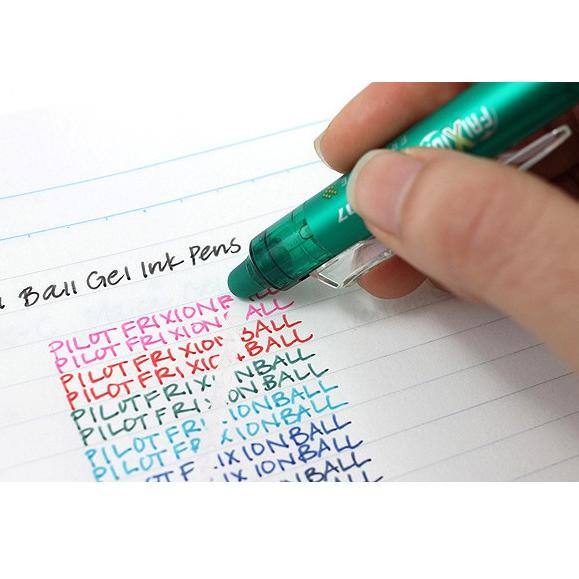 FRIXION
07
Ball Gel Ink Pens
PILOT FRIXION BALL
PILOT FRIXION BALL
PILOT FRIXION BALL
PILOT FRIXI BALL
PILOT FRIX IONBALL
PILOT FRI ON BALL
PILOT FRI IONBALL
PILOT FR IXIONBALL
OT F IXIONBALL
IXIONBALL
ALL